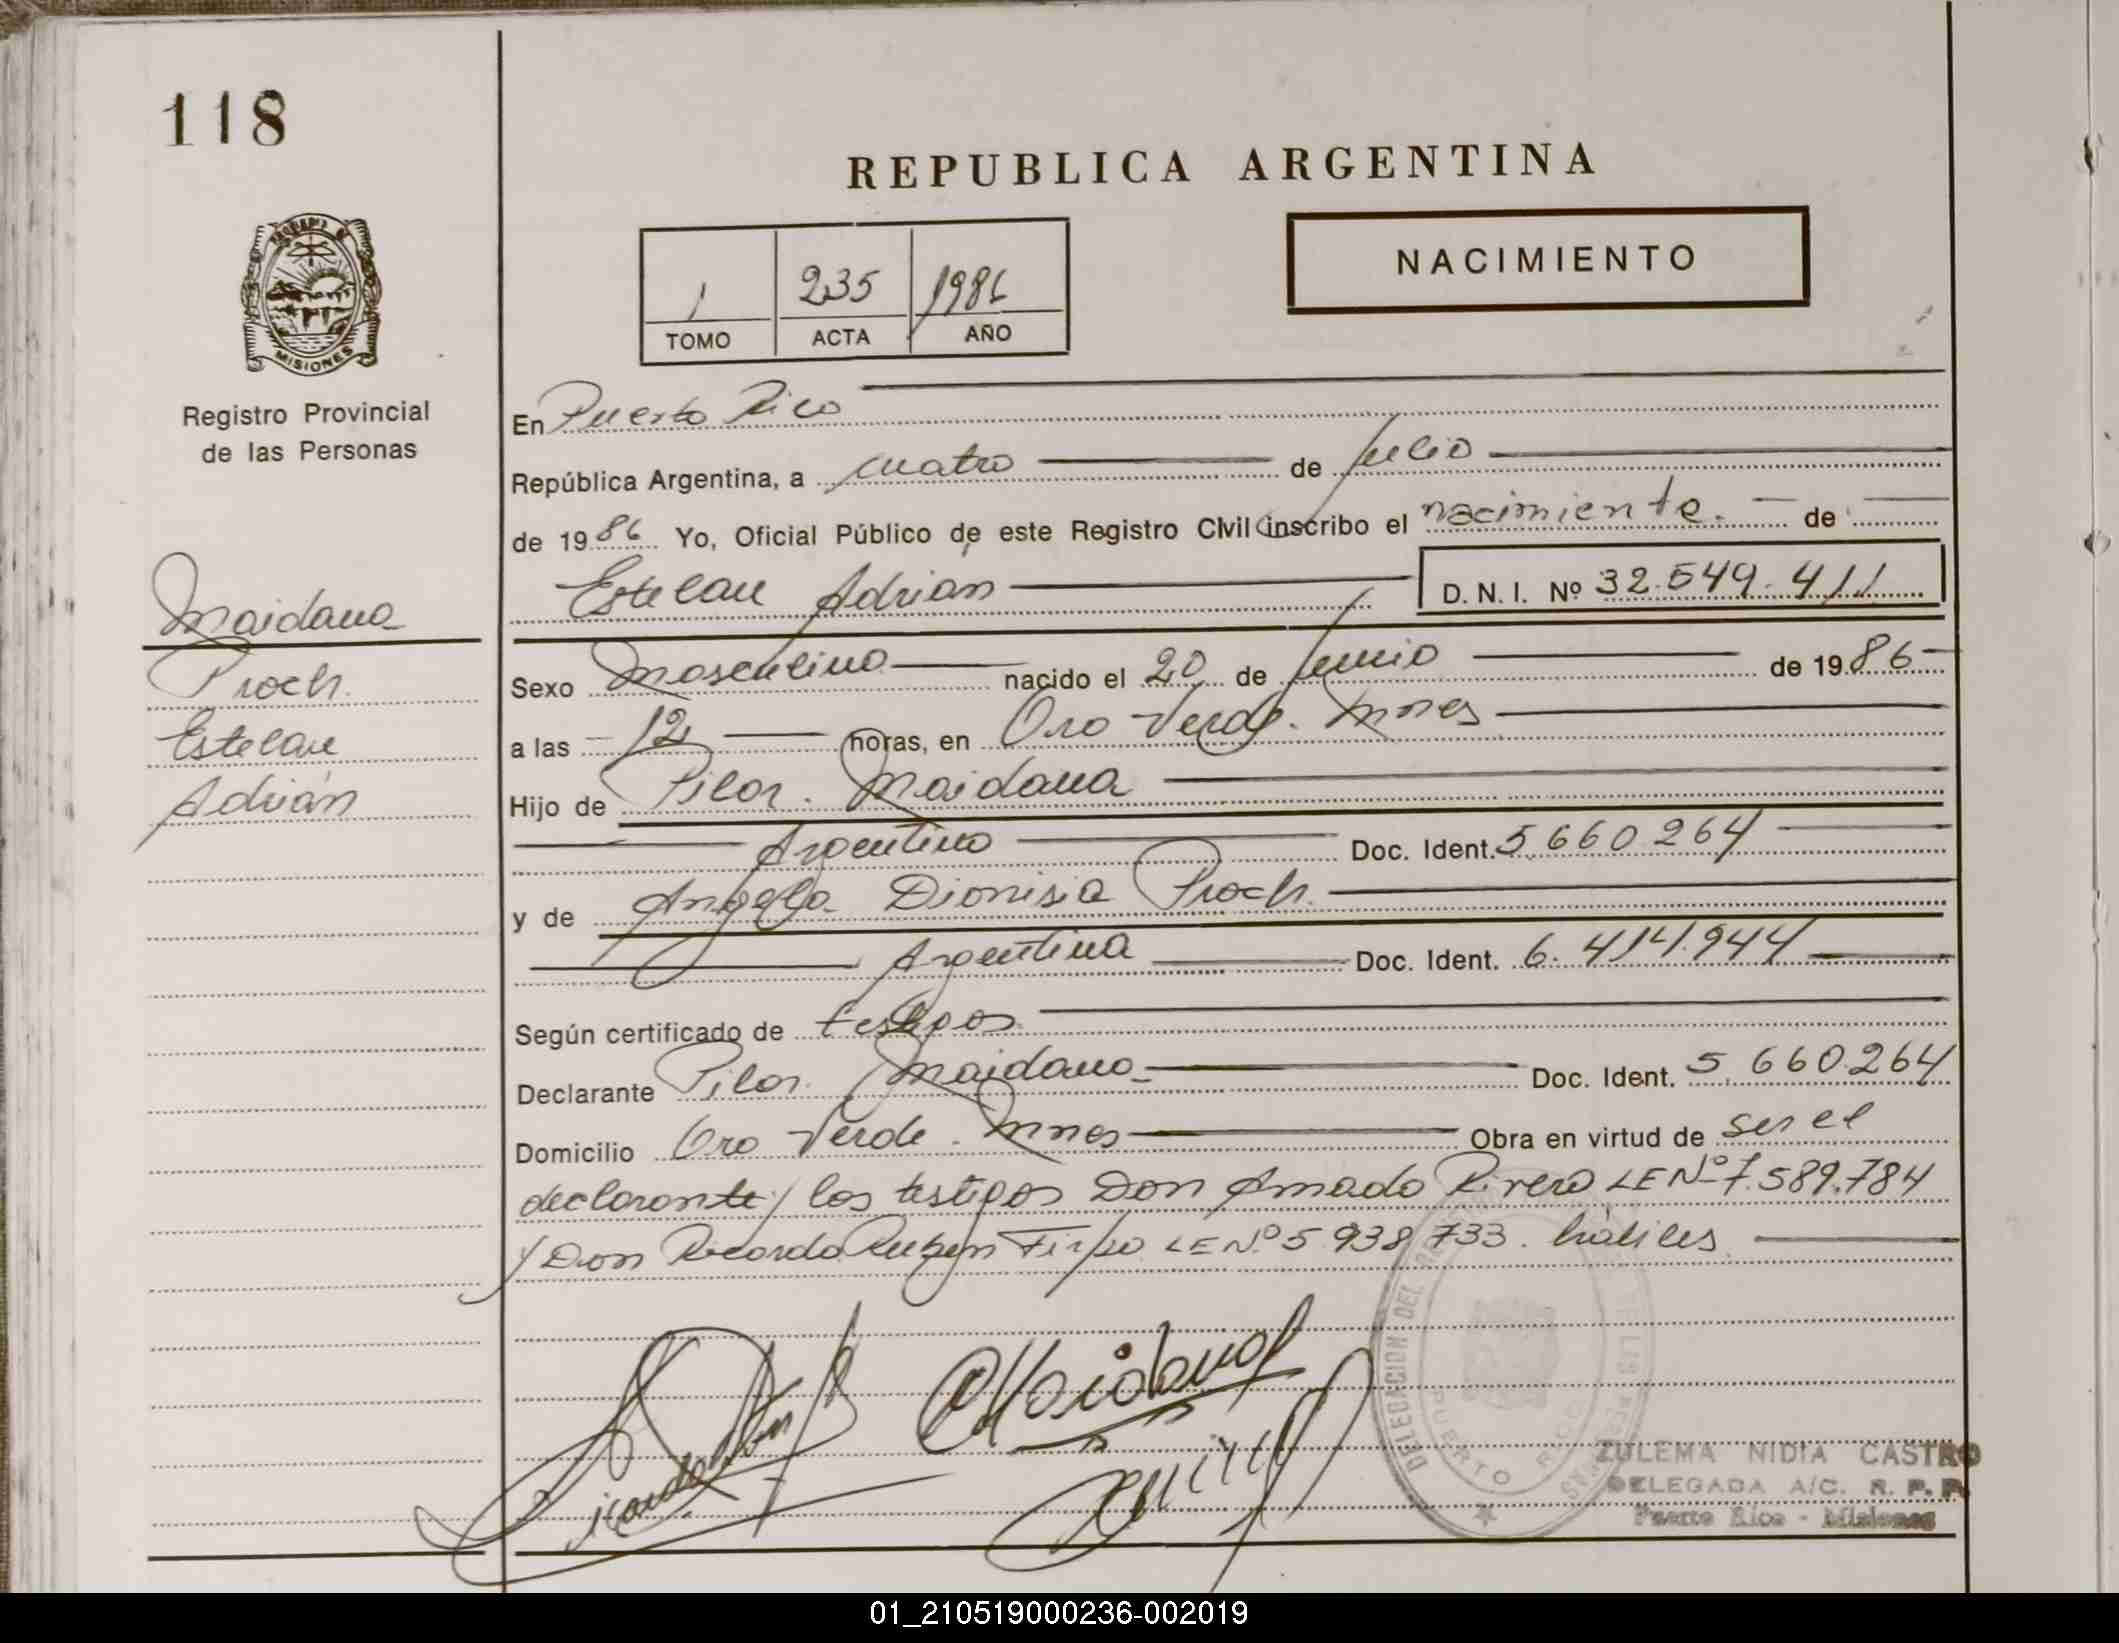 118
REPUBLICA ARGENTINA
NACIMIENTO
1 235 1986
TOMO ACTA AÑO
MISIONES
Registro Provincial
de las Personas
En Puerto Rico
República Argentina, a cuatro de Julio
de 1986 Yo, Oficial Público de este Registro Civil inscribo el nacimiento. de
Estelau Adrian D. N. I. Nº 32.549.411
Maidana
Proch.
Estelau
Adrián
Sexo Masculino nacido el 20 de Junio de 1986
a las 12 horas, en Oro Verde. Mnes
Hijo de Pilar. Maidana
Argentino Doc. Ident. 5.660.264
y de Angela Dionisia Proch.
Argentina Doc. Ident. 6.414.944
Según certificado de testigos
Declarante Pilar. Maidana Doc. Ident. 5.660.264
Domicilio Oro Verde. Mnes Obra en virtud de ser el
declarante y los testigos Don Amado Rivero LE Nº 7.589.784
y Don Ricardo Ruben Firpo LE Nº 5.938.733. hábiles
Maidana
DELEGACION DEL PUERTO RICO
ZULEMA NIDIA CASTRO
DELEGADA A/C. R. P. P.
Puerto Rico - Misiones
01_210519000236-002019